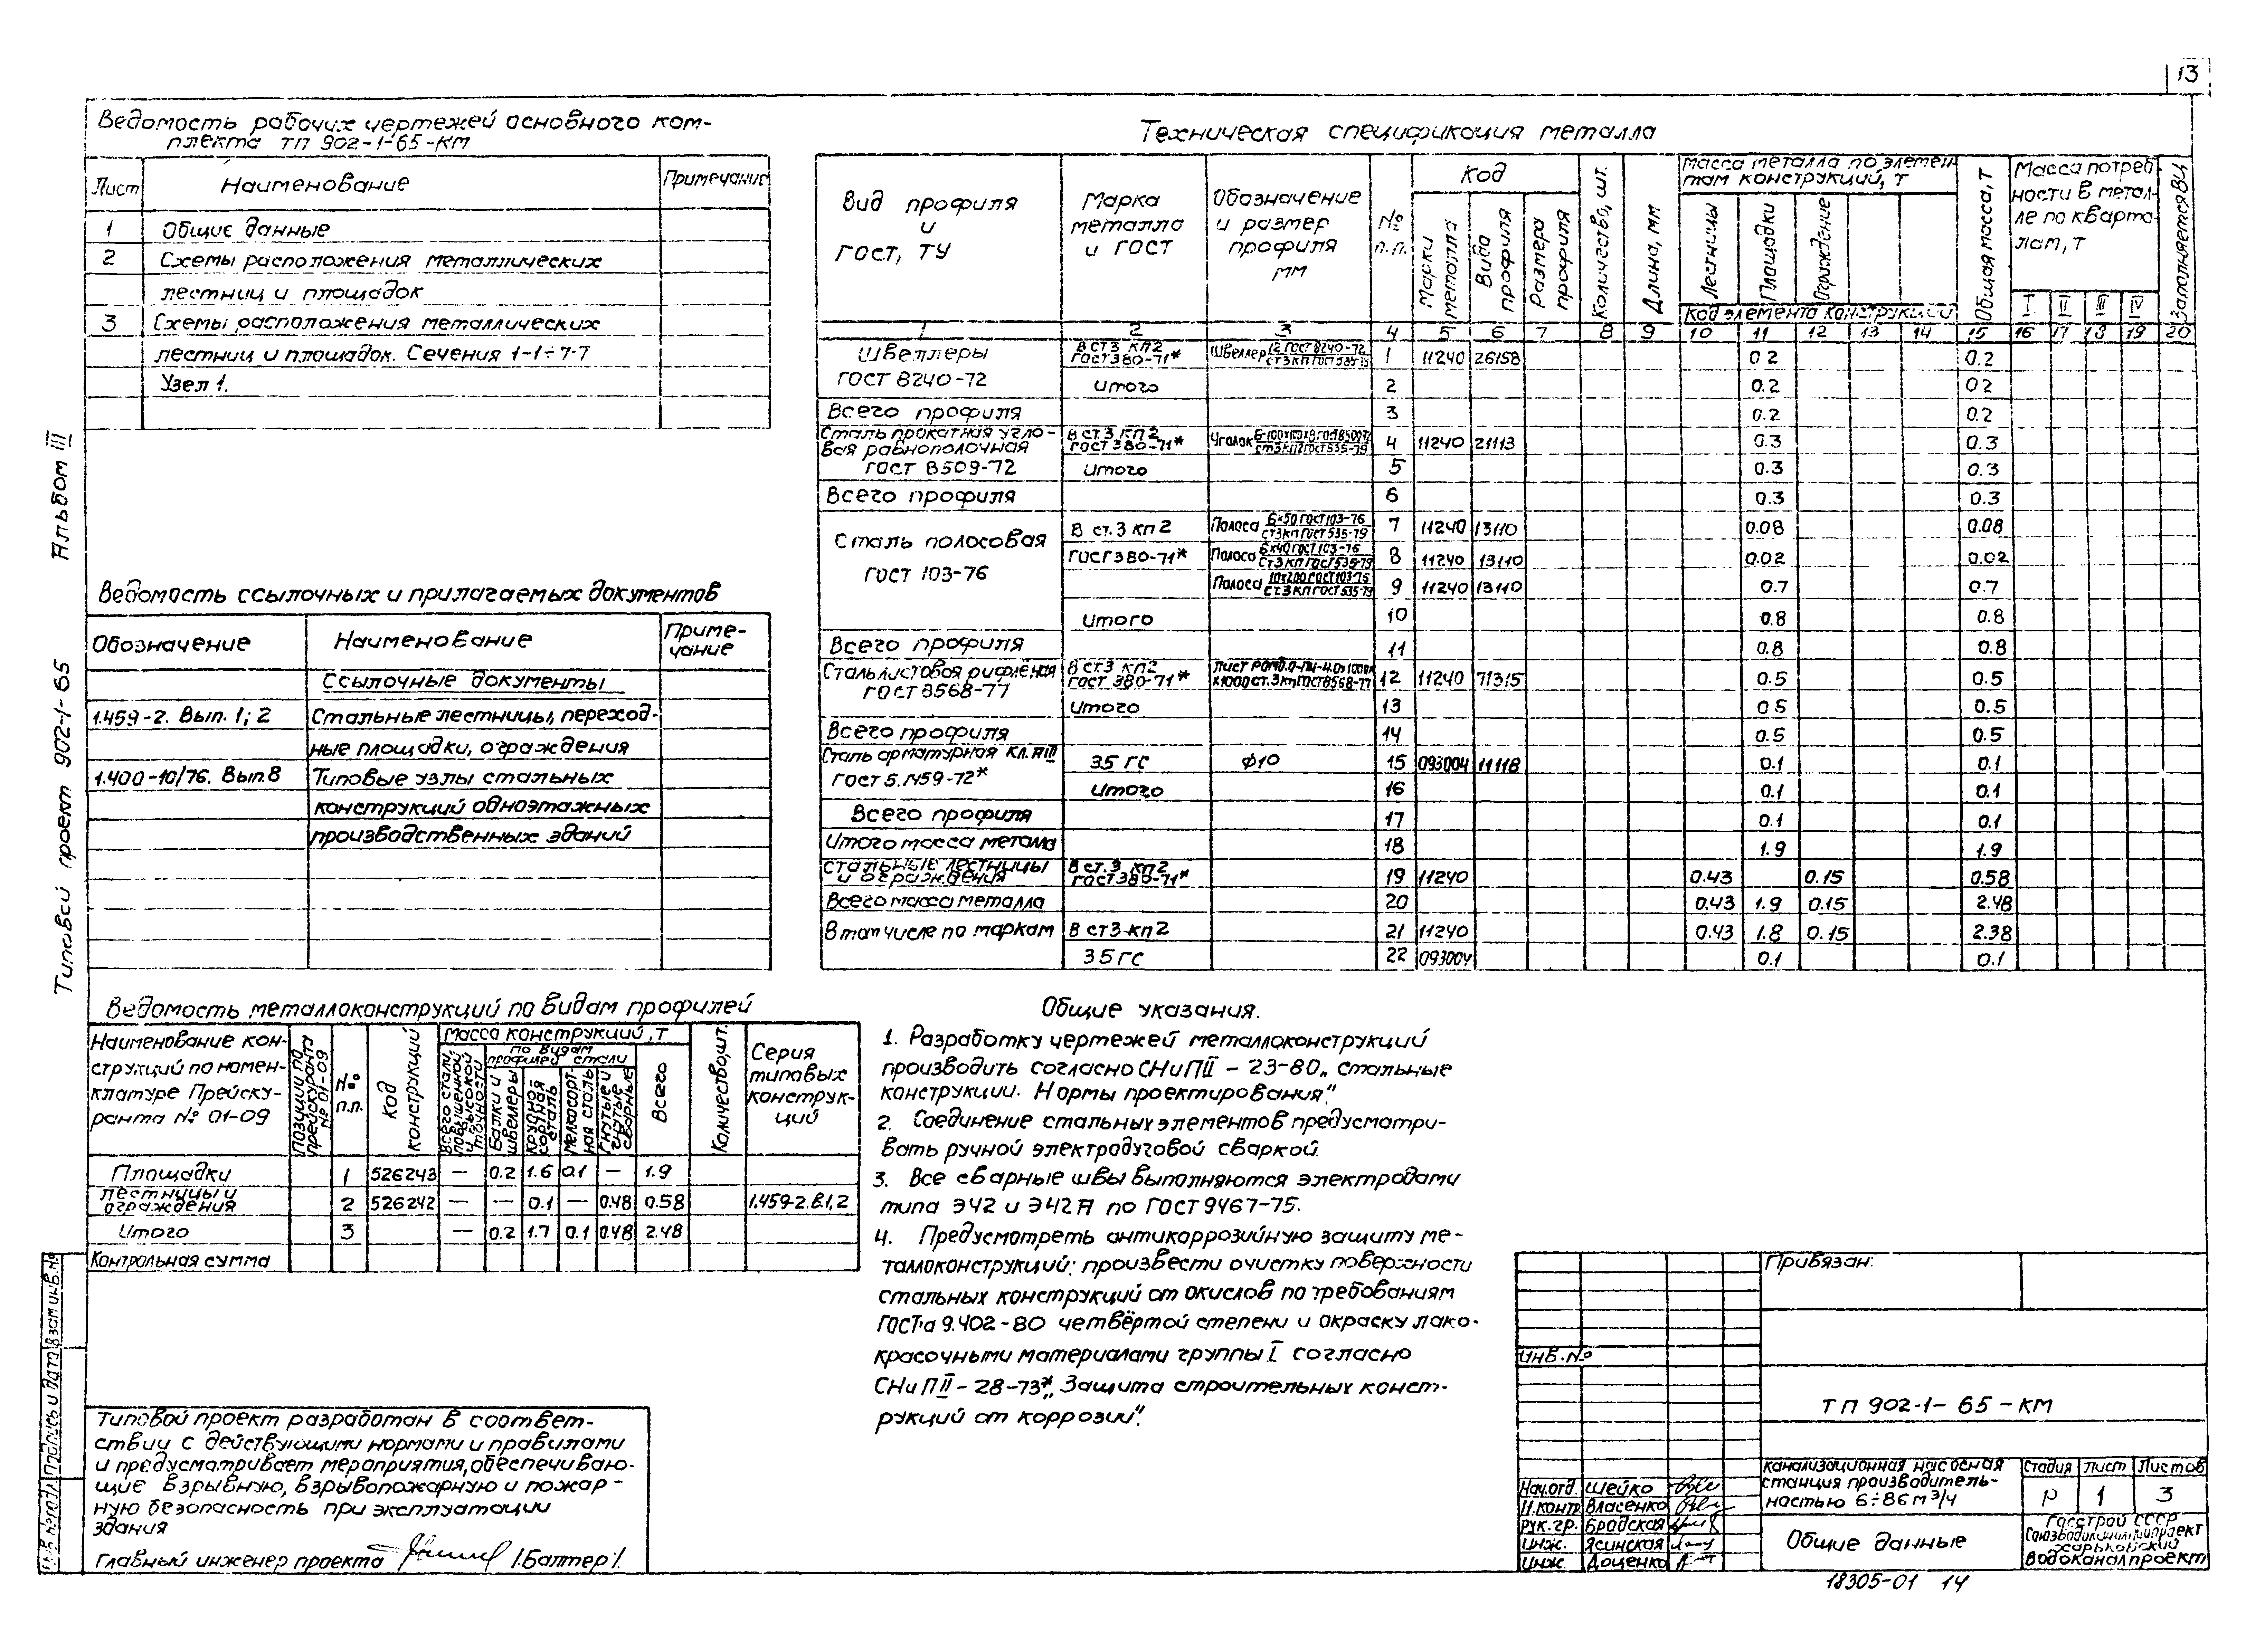 13
Ведомость рабочих чертежей основного ком-
плекта ТП 902-1-65-КМ
Лист Наименование Примечание
1 Общие данные
2 Схемы расположения металлических
лестниц и площадок
3 Схемы расположения металлических
лестниц и площадок. Сечения 1-1÷7-7
Узел 1.
Альбом III
Типовой проект 902-1-65
Ведомость ссылочных и прилагаемых документов
Обозначение Наименование Приме-
чание
Ссылочные документы
1.459-2. Вып. 1; 2 Стальные лестницы, переход-
ные площадки, ограждения
1.400-10/76. Вып.8 Типовые узлы стальных
конструкций одноэтажных
производственных зданий
Техническая спецификация металла
Вид профиля
и
ГОСТ, ТУ
Марка
металла
и ГОСТ
Обозначение
и размер
профиля
мм
№
п.п.
Код
Марки металла
Вида профиля
Размера профиля
Количество, шт.
Длина, мм
Масса металла по элемен
там конструкций, т
Лестницы
Площадки
Ограждение
Код элемента конструкции
Общая масса, т
Масса потреб-
ности в метал-
ле по кварта-
лам, т
I II III IV
Заполняется ВЦ
1 2 3 4 5 6 7 8 9 10 11 12 13 14 15 16 17 18 19 20
Швеллеры
ГОСТ 8240-72
В ст3 кп2
ГОСТ380-71*
Швеллер 12 ГОСТ 8240-72
1 11240 26158 0.2 0.2
Итого 2 0.2 0.2
Всего профиля 3 0.2 0.2
Сталь прокатная угло-
вая равнополочная
ГОСТ 8509-72
В ст.3 кп2
ГОСТ380-71*
Уголок
4 11240 21113 0.3 0.3
Итого 5 0.3 0.3
Всего профиля 6 0.3 0.3
Сталь полосовая
ГОСТ 103-76
В ст.3 кп2
ГОСТ380-71*
Полоса 6×50 ГОСТ103-76
ст3кп ГОСТ 535-79
7 11240 13110 0.08 0.08
Полоса 6×40 ГОСТ 103-76
ст3кп ГОСТ535-79
8 11240 13110 0.02 0.02
Полоса 10×200 ГОСТ103-76
ст3кп ГОСТ 535-79
9 11240 13110 0.7 0.7
Итого 10 0.8 0.8
Всего профиля 11 0.8 0.8
Сталь листовая рифленая
ГОСТ 8568-77
В ст3 кп2
ГОСТ 380-71*
Лист
12 11240 71315 0.5 0.5
Итого 13 0.5 0.5
Всего профиля 14 0.5 0.5
Сталь арматурная Кл. АIII
ГОСТ 5.1459-72*
35 ГС ф10 15 093004 11118 0.1 0.1
Итого 16 0.1 0.1
Всего профиля 17 0.1 0.1
Итого масса метала 18 1.9 1.9
Стальные лестницы
и ограждения
В ст.3 кп2
ГОСТ380-71*
19 11240 0.43 0.15 0.58
Всего масса металла 20 0.43 1.9 0.15 2.48
В том числе по маркам В ст3 кп2 21 11240 0.43 1.8 0.15 2.38
35 ГС 22 093004 0.1 0.1
Ведомость металлоконструкций по видам профилей
Наименование кон-
струкций по номен-
клатуре Прейску-
ранта № 01-09
Позиции по прейскуранту № 01-09
№
п.п.
Код конструкций
Масса конструкций, т
Всего стали повышенной и высокой точности
по видам
профилей стали
Балки и швеллеры
Крупно сортная сталь
Мелкосорт-ная сталь
Гнутые и гнутые сварные
Всего
Количество, шт.
Серия
типовых
конструк-
ций
Площадки 1 526243 — 0.2 1.6 0.1 — 1.9
Лестницы и
ограждения 2 526242 — — 0.1 — 0.48 0.58 1.459-2.в.1,2
Итого 3 — 0.2 1.7 0.1 0.48 2.48
Контрольная сумма
Общие указания.
1. Разработку чертежей металлоконструкций
производить согласно СНиП II – 23-80 „Стальные
конструкции. Нормы проектирования".
2. Соединение стальных элементов предусматри-
вать ручной электродуговой сваркой.
3. Все сварные швы выполняются электродами
типа Э42 и Э42А по ГОСТ 9467-75.
4. Предусмотреть антикоррозийную защиту ме-
таллоконструкций: произвести очистку поверхности
стальных конструкций от окислов по требованиям
ГОСТ'а 9.402-80 четвёртой степени и окраску лако-
красочными материалами группы I согласно
СНиП II – 28-73* „Защита строительных конст-
рукций от коррозии".
Типовой проект разработан в соответ-
ствии с действующими нормами и правилами
и предусматривает мероприятия, обеспечиваю-
щие взрывную, взрывопожарную и пожар-
ную безопасность при эксплуатации
здания
Главный инженер проекта /Балтер/.
Инв. № подл. Подпись и дата Взам инв. №
Привязан:
Инв. №
ТП 902-1-65-КМ
Нач.отд. Шейко
Н.контр Власенко
Рук.гр. Бродская
Инж. Ясинская
Инж. Доценко
Канализационная насосная
станция производитель-
ностью 6÷86 м³/ч
Стадия Лист Листов
Р 1 3
Общие данные
Госстрой СССР
Союзводоканалпроект
Харьковский
Водоканалпроект
18305-01 14